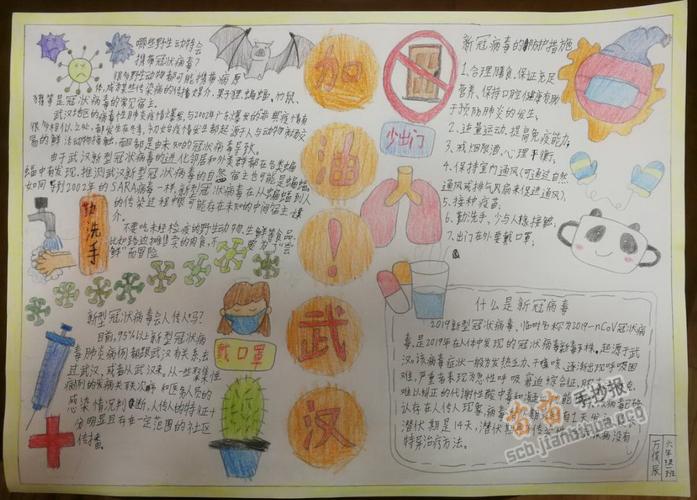 哪些野生动物会
携带冠状病毒?
很多野生动物都可能携带病原
体,成为某些传染病的传播媒介,果子狸、蝙蝠、竹鼠、
獾等是冠状病毒的常见宿主。
武汉地区的病毒性肺炎疫情爆发,与2002年广东爆发的
由于武汉新型冠状病毒的进化邻居和外类群都在各类蝙
蝠中有发现,推测武汉新型冠状病毒的自然宿主也可能是蝙蝠。
如同导到2002年的SARA病毒一样,新型冠状病毒在从蝙蝠到人
的传染过程中很可能存在未知的中间宿主媒
介。
不要吃未经检疫的野生动物、生鲜等食品,
比如路边摊售卖的肉食,不要为了“尝
鲜”而冒险
勤洗手
新型冠状病毒会人传人吗?
目前,95%以上新型冠状病
毒肺炎病例都跟武汉有关系,去
过武汉,或者从武汉来。从一些聚集性
病例的发病关联次序和医务人员的
感染情况判断,人传人的特征十
分明显且存在一定范围的社区
传播。
戴口罩
加
油
!
武
汉
少出门
新冠病毒的防护措施
1、合理膳食、保证充足
营养、保持口腔健康有助
于预防肺炎的发生;
2、适量运动,提高免疫能力;
3、戒烟限酒、心理平衡;
4、保持室内通风(可通过自然
通风或排气风扇来促进通风);
5、接种疫苗;
6、勤洗手、少与人缘接触;
7、出门在外要戴口罩;
什么是新冠病毒
2019新型冠状病毒,临时名称为2019-nCoV冠状病
毒,是2019年在人体中发现的冠状病毒新毒株。起源于武
汉。该病毒症状一般为发热、乏力、干咳、逐渐出现呼吸困
难,严重者表现为急性呼吸窘迫综合征、
难以纠正的代谢性酸中毒和
认存在人传人现象
潜伏期是14天,
特异治疗方法。
苗苗手抄报
scb.jianglhua.org.cn